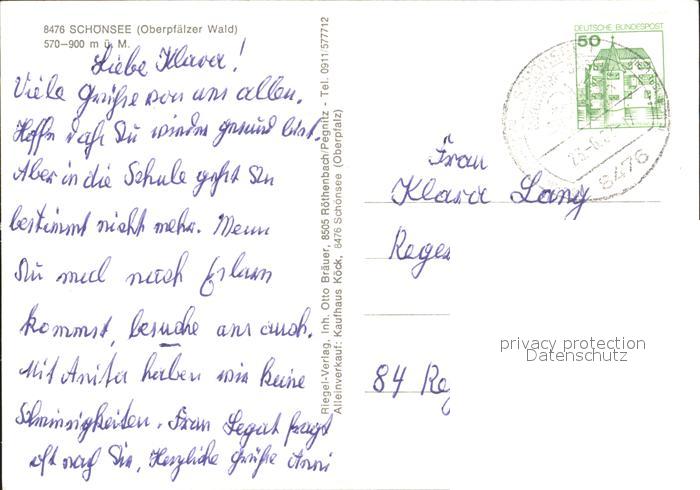 8476 SCHÖNSEE (Oberpfälzer Wald)
570–900 m ü. M.
Liebe Klara!
Viele Grüße von uns allen.
Hoffe daß Du wieder gesund bist.
Aber in die Schule gehst Du
bestimmt nicht mehr. Wenn
Du mal nach
kommst, besuche uns auch.
Mit Anita haben wir keine
Schwierigkeiten. Frau Legat fragt
oft nach Dir, Herzliche Grüße Anni
Riegel-Verlag, Inh. Otto Bräuer, 8505 Röthenbach/Pegnitz - Tel. 0911/577712
Alleinverkauf: Kaufhaus Köck, 8476 Schönsee (Oberpfalz)
DEUTSCHE BUNDESPOST
50
8476
Frau
Klara Lang
Regen
84 Reg
privacy protection
Datenschutz